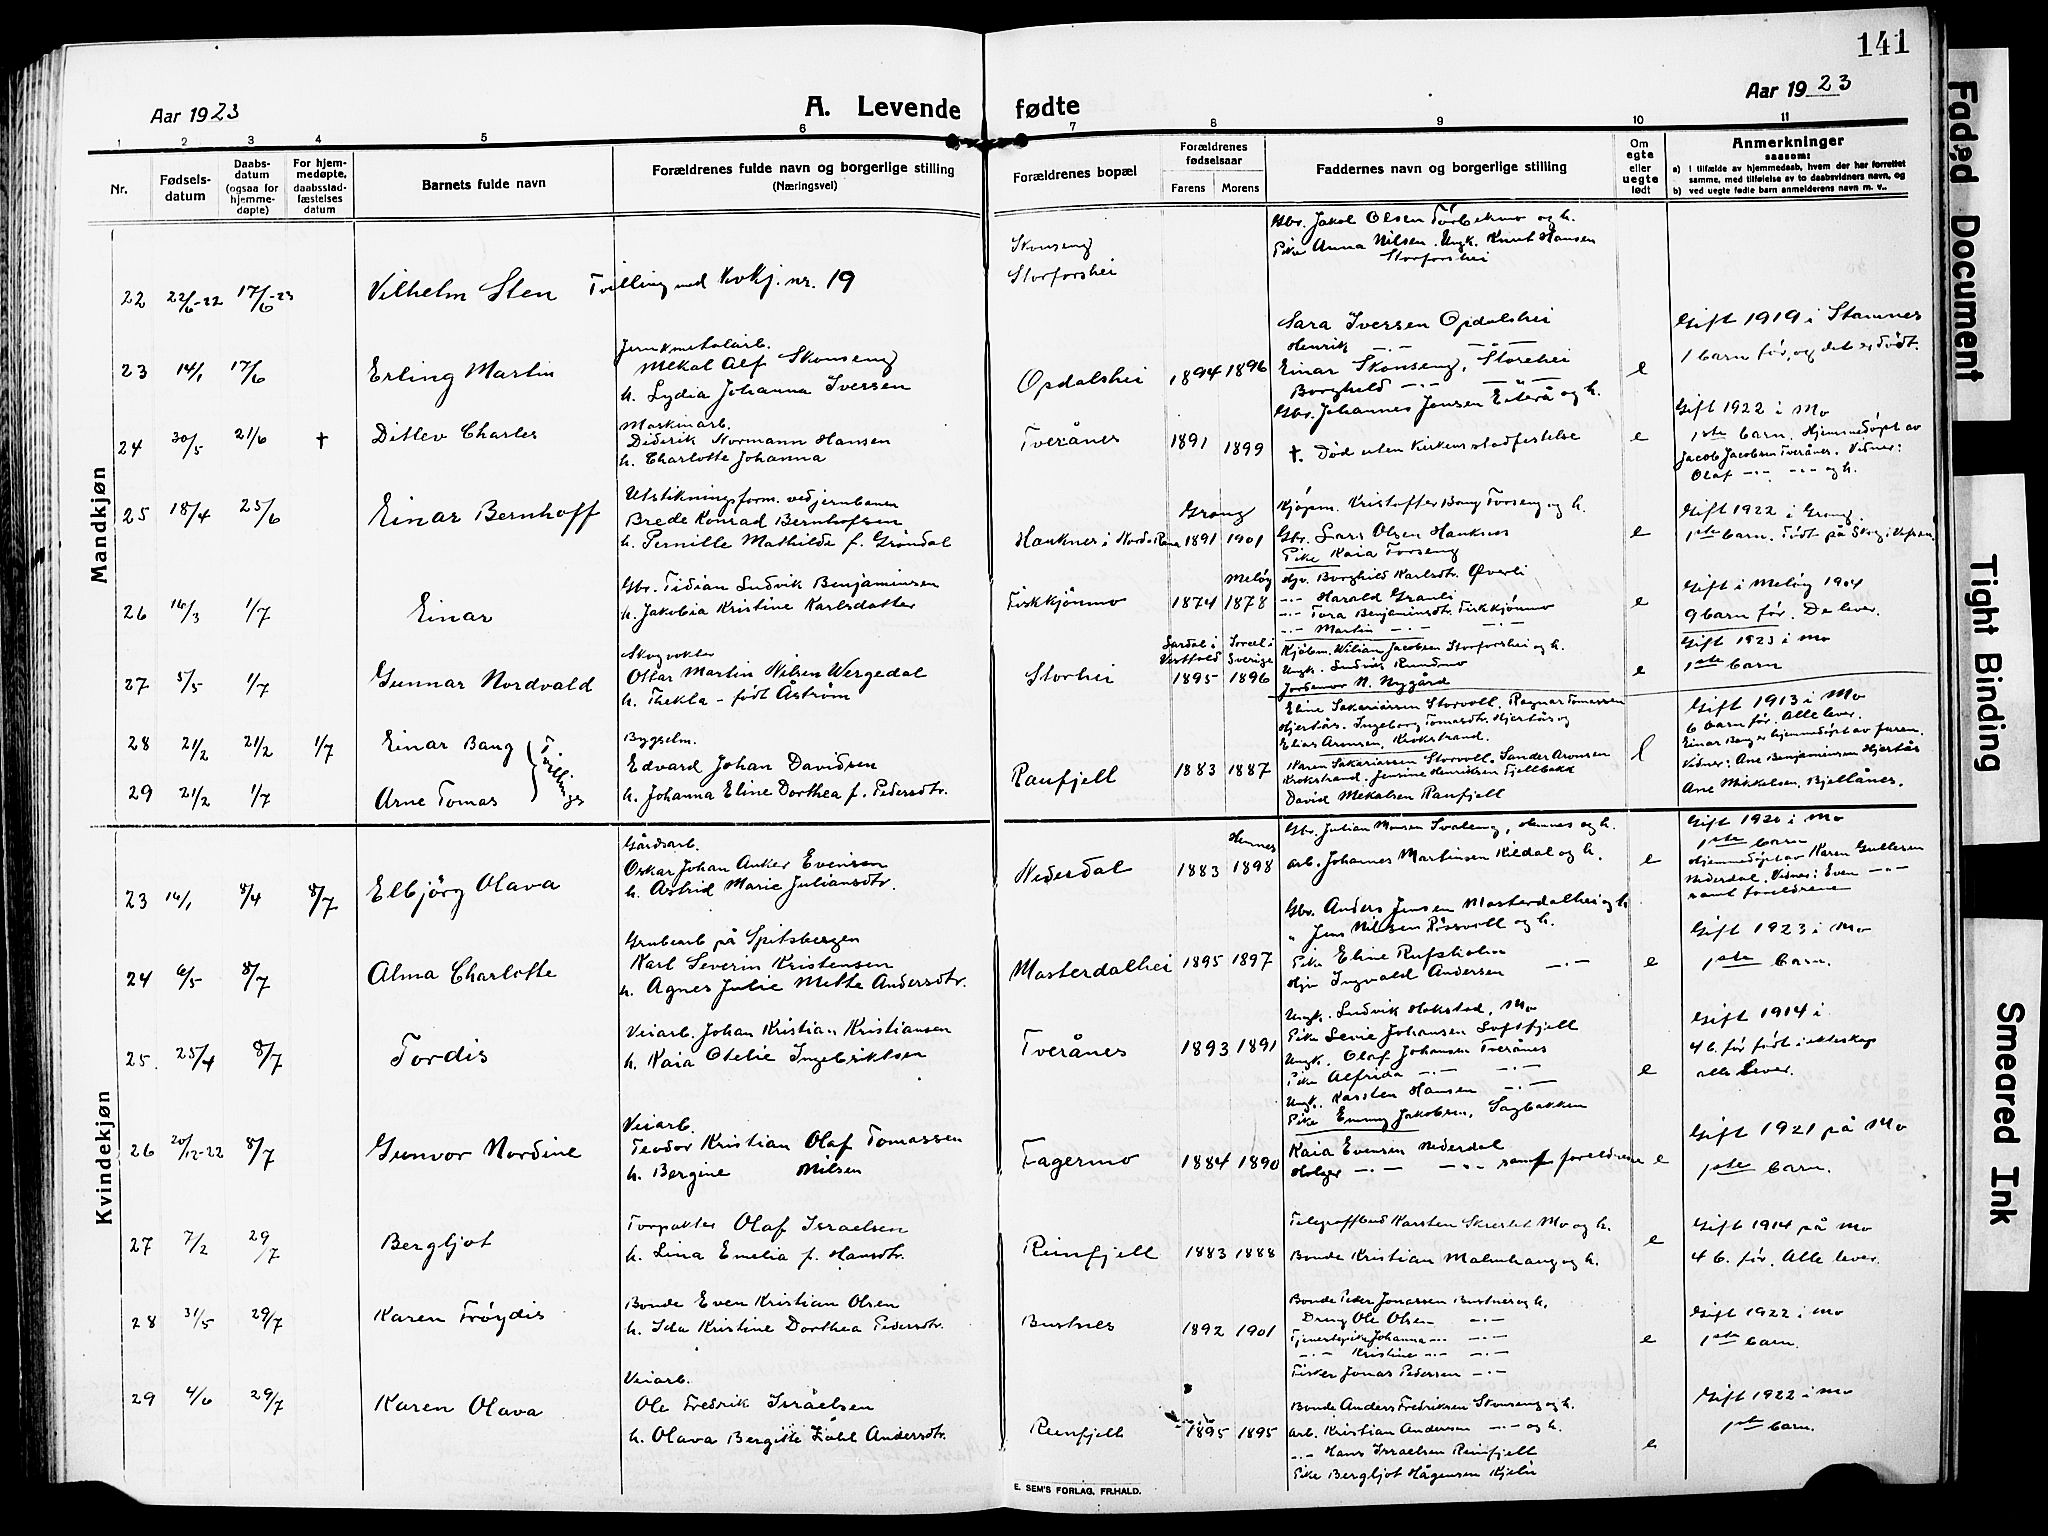 141
Aar 1923
A. Levende fødte
Aar 1923
1 2 3 4 5 6 7 8 9 10 11
Nr.
Fødsels-
datum
Daabs-
datum
(ogsaa for
hjemme-
døpte)
For hjem-
medøpte,
daabsstad-
fæstelses
datum
Barnets fulde navn
Forældrenes fulde navn og borgerlige stilling
(Næringsvei)
Forældrenes bopæl
Forældrenes
fødselsaar
Farens Morens
Faddernes navn og borgerlige stilling
Om
egte
eller
uegte
født
Anmerkninger
saasom:
a) i tilfælde av hjemmedaab, hvem der har forrettet
samme, med tilføielse av to daabsvidners navn, og
b) ved uegte fødte barn anmelderens navn m. v..
Mandkjøn
22 22/6-22 17/6-23 Vilhelm Sten Tvilling med Kvkj. nr. 19
Skonseng
Storforshei
Gbr. Jakob Olsen og h.
Pike Anna Nilsen. Ungk. Knut Hansen
Storforshei
23 14/1 17/6 Erling Martin
Jern & metalarb.
Mekal Alf Skonseng
h. Lydia Johanna Iversen
Opdalshei 1894 1896
Sara Iversen Opdalshei
Henrik -..- -..-
Einar Skonseng, Storehei
Borghild -..- -..-
e
Gift 1919 i Stamnes
1 barn før, og det er født.
24 30/5 21/6 † Ditlev Charles
Maskinarb.
Diderik Normann Hansen
h. Charlotte Johanna
Tverånes 1891 1899
Gbr. Johannes Jensen Eiterå og h.
†. Død uten Kirkens stadfestelse
e
Gift 1922 i Mo
1ste barn. Hjemmedøpt av
Jacob Jacobsen Tverånes. Vidner:
Olaf -..- -..- og h.
25 18/4 25/6 Einar Bernhoff
Utstikningsform. ved jernbanen
Brede Konrad Bernhofsen
h. Pernille Mathilde f. Grøndal
Hauknes i Nord-Rana 1891 Grong 1901
Kjøpm. Kristoffer Bang Forseng og h.
Gbr. Lars Olsen Hauknes
Pike Kaia Forseng
e
Gift 1922 i Grong
1ste barn. Født på Skog i Vefsn.
26 14/3 1/7 Einar
Gbr. Tidian Ludvik Benjaminsen
h. Jakobia Kristine Karlsdatter
Fiskkjønmo 1874 Meløy 1878
Hjv. Borghild Karlsdtr. Øverli
-..- Harald Granli
-..- Tora Benjaminsdtr. Fiskkjønmo
-..- Martin -..- -..-
e
Gift i Meløy 1904
9 barn før. De lever.
27 5/5 1/7 Gunnar Nordvald
Skogvokter
Ollar Martin Nilsen Wergedal
h. Thekla - født Åstrøm
Storhei Lardal i Vestfold 1895 Sorsel i Sverige 1896
Kjøbm. Wilian Jacobsen Storforshei og h.
Ungk. Ludvik Rundmo
Jordemor N. Nygård
e
Gift 1923 i Mo
1ste barn
28 21/2 21/2 1/7 Einar Bang
29 21/2 1/7 Arne Tomas
Tvillinger
Bygselm.
Edvard Johan Davidsen
h. Johanna Eline Dorthea f. Pedersdtr.
Raufjell 1883 1887
Eline Sakariassen Storvoll. Ragnar Tomassen
Hjertås. Ingeborg Tomasdtr. Hjertås og
Elias Aronsen. Krokstrand.
Karen Sakariassen Storvoll. Sander Aronsen
Krokstrand. Jensine Henriksen Fjellbakk
David Mekalsen Raufjell
e
Gift 1913 i Mo
6 barn før. Alle lever.
Einar Bang er hjemmedøpt av faren.
Vidner: Ane Benjaminsen Hjertås
Ane Mikkelsen, Bjellånes.
Kvindekjøn
23 14/1 8/4 8/7 Elbjørg Olava
Gårdsarb.
Oskar Johan Anker Evensen
h. Astrid Marie Juliansdtr.
Nedesdal 1883 Hemnes 1898
Gbr. Julian Monsen Svaleng, Hemnes og h.
Arb. Johannes Martinsen Kildal og h.
e
Gift 1920 i Mo
1ste barn
Hjemmedøpt av Karen Gullesen
Nederdal. Vidner: Even -..-
samt foreldrene
24 6/5 8/7 Alma Charlotte
Grubearb på Spitsbergen
Karl Severin Kristensen
h. Agnes Julie Mette Andersdtr.
Masterdalhei 1895 1897
Gbr. Anders Jensen Masterdalhei og h
" Jens Nilsen Røsvoll og h.
Pike Eline Rufsholm
Hjv Ingvald Andersen -..-
e
Gift 1923 i Mo
1ste barn.
25. 25/4 8/7 Tordis
Veiarb. Johan Kristian Kristiansen
h. Kaia Otelie Ingebriktsen
Tverånes 1893 1891
Ungk. Ludvik Hokstad, Mo
Pike Levie Johansen Loftfjell
Ungk. Olaf Johansen Tverånes
Pike Alfrida -..- -..-
Ungk. Karsten Hansen -..-
Pike Emmy Jakobsen, Sagbakken
e
Gift 1914 i
4 b. før født i ekteskap
alle lever.
26 20/12-22 8/7 Gunvor Nordine
Veiarb.
Teodor Kristian Olaf Tomassen
h. Bergine Nilsen
Fagermo 1884 1890
Kaia Evensen Nederdal
Holger -..- -..- samt foreldrene
e
Gift 1921 på Mo
1ste barn.
27 7/2 29/7 Bergljot
Forpakter Olaf Israelsen
h. Lina Emelia f. Hansdtr.
Reinfjell 1883 1888
Telegrafbud Karsten Skrestet Mo og h.
Bonde Kristian Malmhaug og h.
e
Gift 1914 på Mo
4 b. før. Alle lever.
28 31/5 29/7 Karen Frøydis
Bonde Even Kristian Olsen
h. Ida Kristine Dorthea Pedersdtr.
Bustnes 1892 1901
Bonde Peder Jonassen Bustnes og h.
Dreng Ole Olsen -..-
Tjenestepike Johanna -..- -..-
-..- Kristine -..- -..-
Fisker Jonas Pedersen -..-
e
Gift 1922 i Mo
1ste barn.
29 4/6 29/7 Karen Olava
Veiarb.
Ole Fredrik Israelsen
h. Olava Bergitte Zahl Andersdtr.
Reinfjell 1895 1895
Bonde Anders Fredriksen Skonseng og h.
Arb. Kristian Andersen -..- og h.
-..- Hans Israelsen Reinfjell
Pike Bergljot Hågensen Kjelis
e
Gift 1922 i Mo
1ste barn.
E. SEM'S FORLAG, FR.HALD.
Faded Document
Tight Binding
Smeared Ink